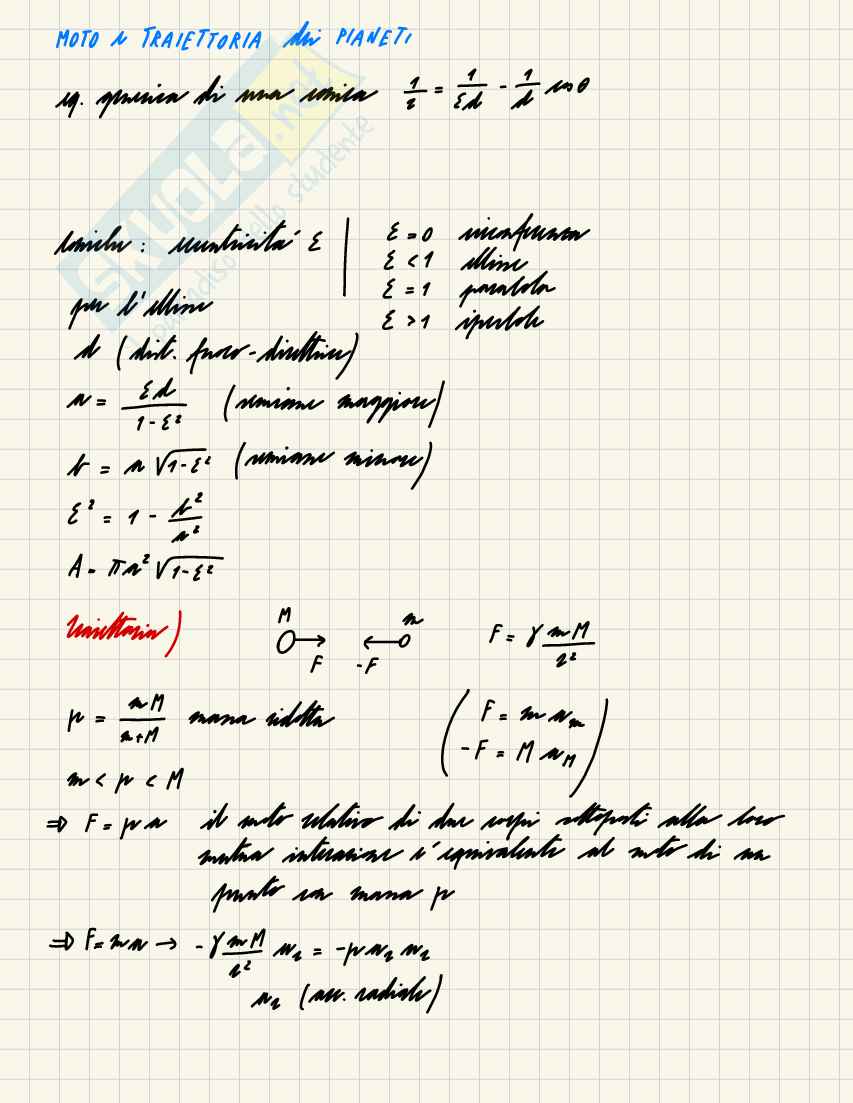 MOTO e TRAIETTORIA dei PIANETI
eq. generica di una conica 1/r = 1/(εd) - 1/d cos θ
SKUOLA.net
il paradiso dello studente
coniche : eccentricità ε
ε = 0 circonferenza
ε < 1 ellisse
ε = 1 parabola
ε > 1 iperbole
per l'ellisse
d (dist. fuoco-direttrice)
a = εd/(1-ε²) (semiasse maggiore)
b = a √(1-ε²) (semiasse minore)
ε² = 1 - b²/a²
A = πa² √(1-ε²)
traiettoria)
M m
F -F
F = γ mM/r²
μ = mM/(m+M) massa ridotta
( F = m aₘ
-F = M a_M )
m < μ < M
⇒ F = μ a il moto relativo di due corpi sottoposti alla loro
mutua interazione è equivalente al moto di un
punto con massa μ
⇒ F = ma → - γ mM/r² uᵣ = -μ aᵣ uᵣ
aᵣ (acc. radiale)